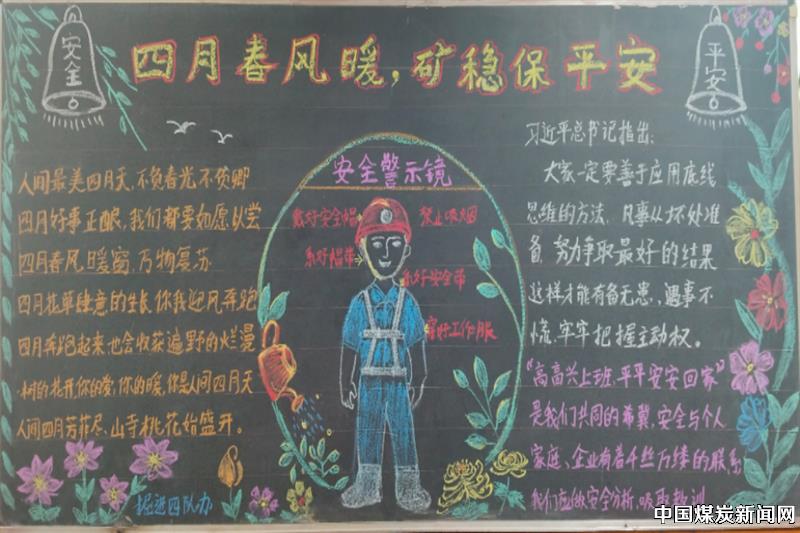 四月春风暖,矿稳保平安
安全
平安
人间最美四月天,不负春光不负卿
四月好事正酿,我们都要如愿以尝
四月春风暖窗,万物复苏
四月花草肆意的生长你我迎风奔跑
四月奔跑起来,也会收获遍野的烂漫
树的花开,你的爱,你的暖,你是人间四月天
人间四月芳菲尽、山寺桃花始盛开。
掘进四队办
安全警示镜
戴好安全帽
禁止吸烟
系好帽带
系好安全带
穿好工作服
习近平总书记指出:
大家一定要善于应用底线
思维的方法,凡事从坏处准
备,努力争取最好的结果
这样才能有备无患,遇事不
慌,牢牢把握主动权。
"高高兴上班,平平安安回家"
是我们共同的希冀,安全与个人
家庭、企业有着千丝万缕的联系
我们应做安全分析,吸取教训
中国煤炭新闻网